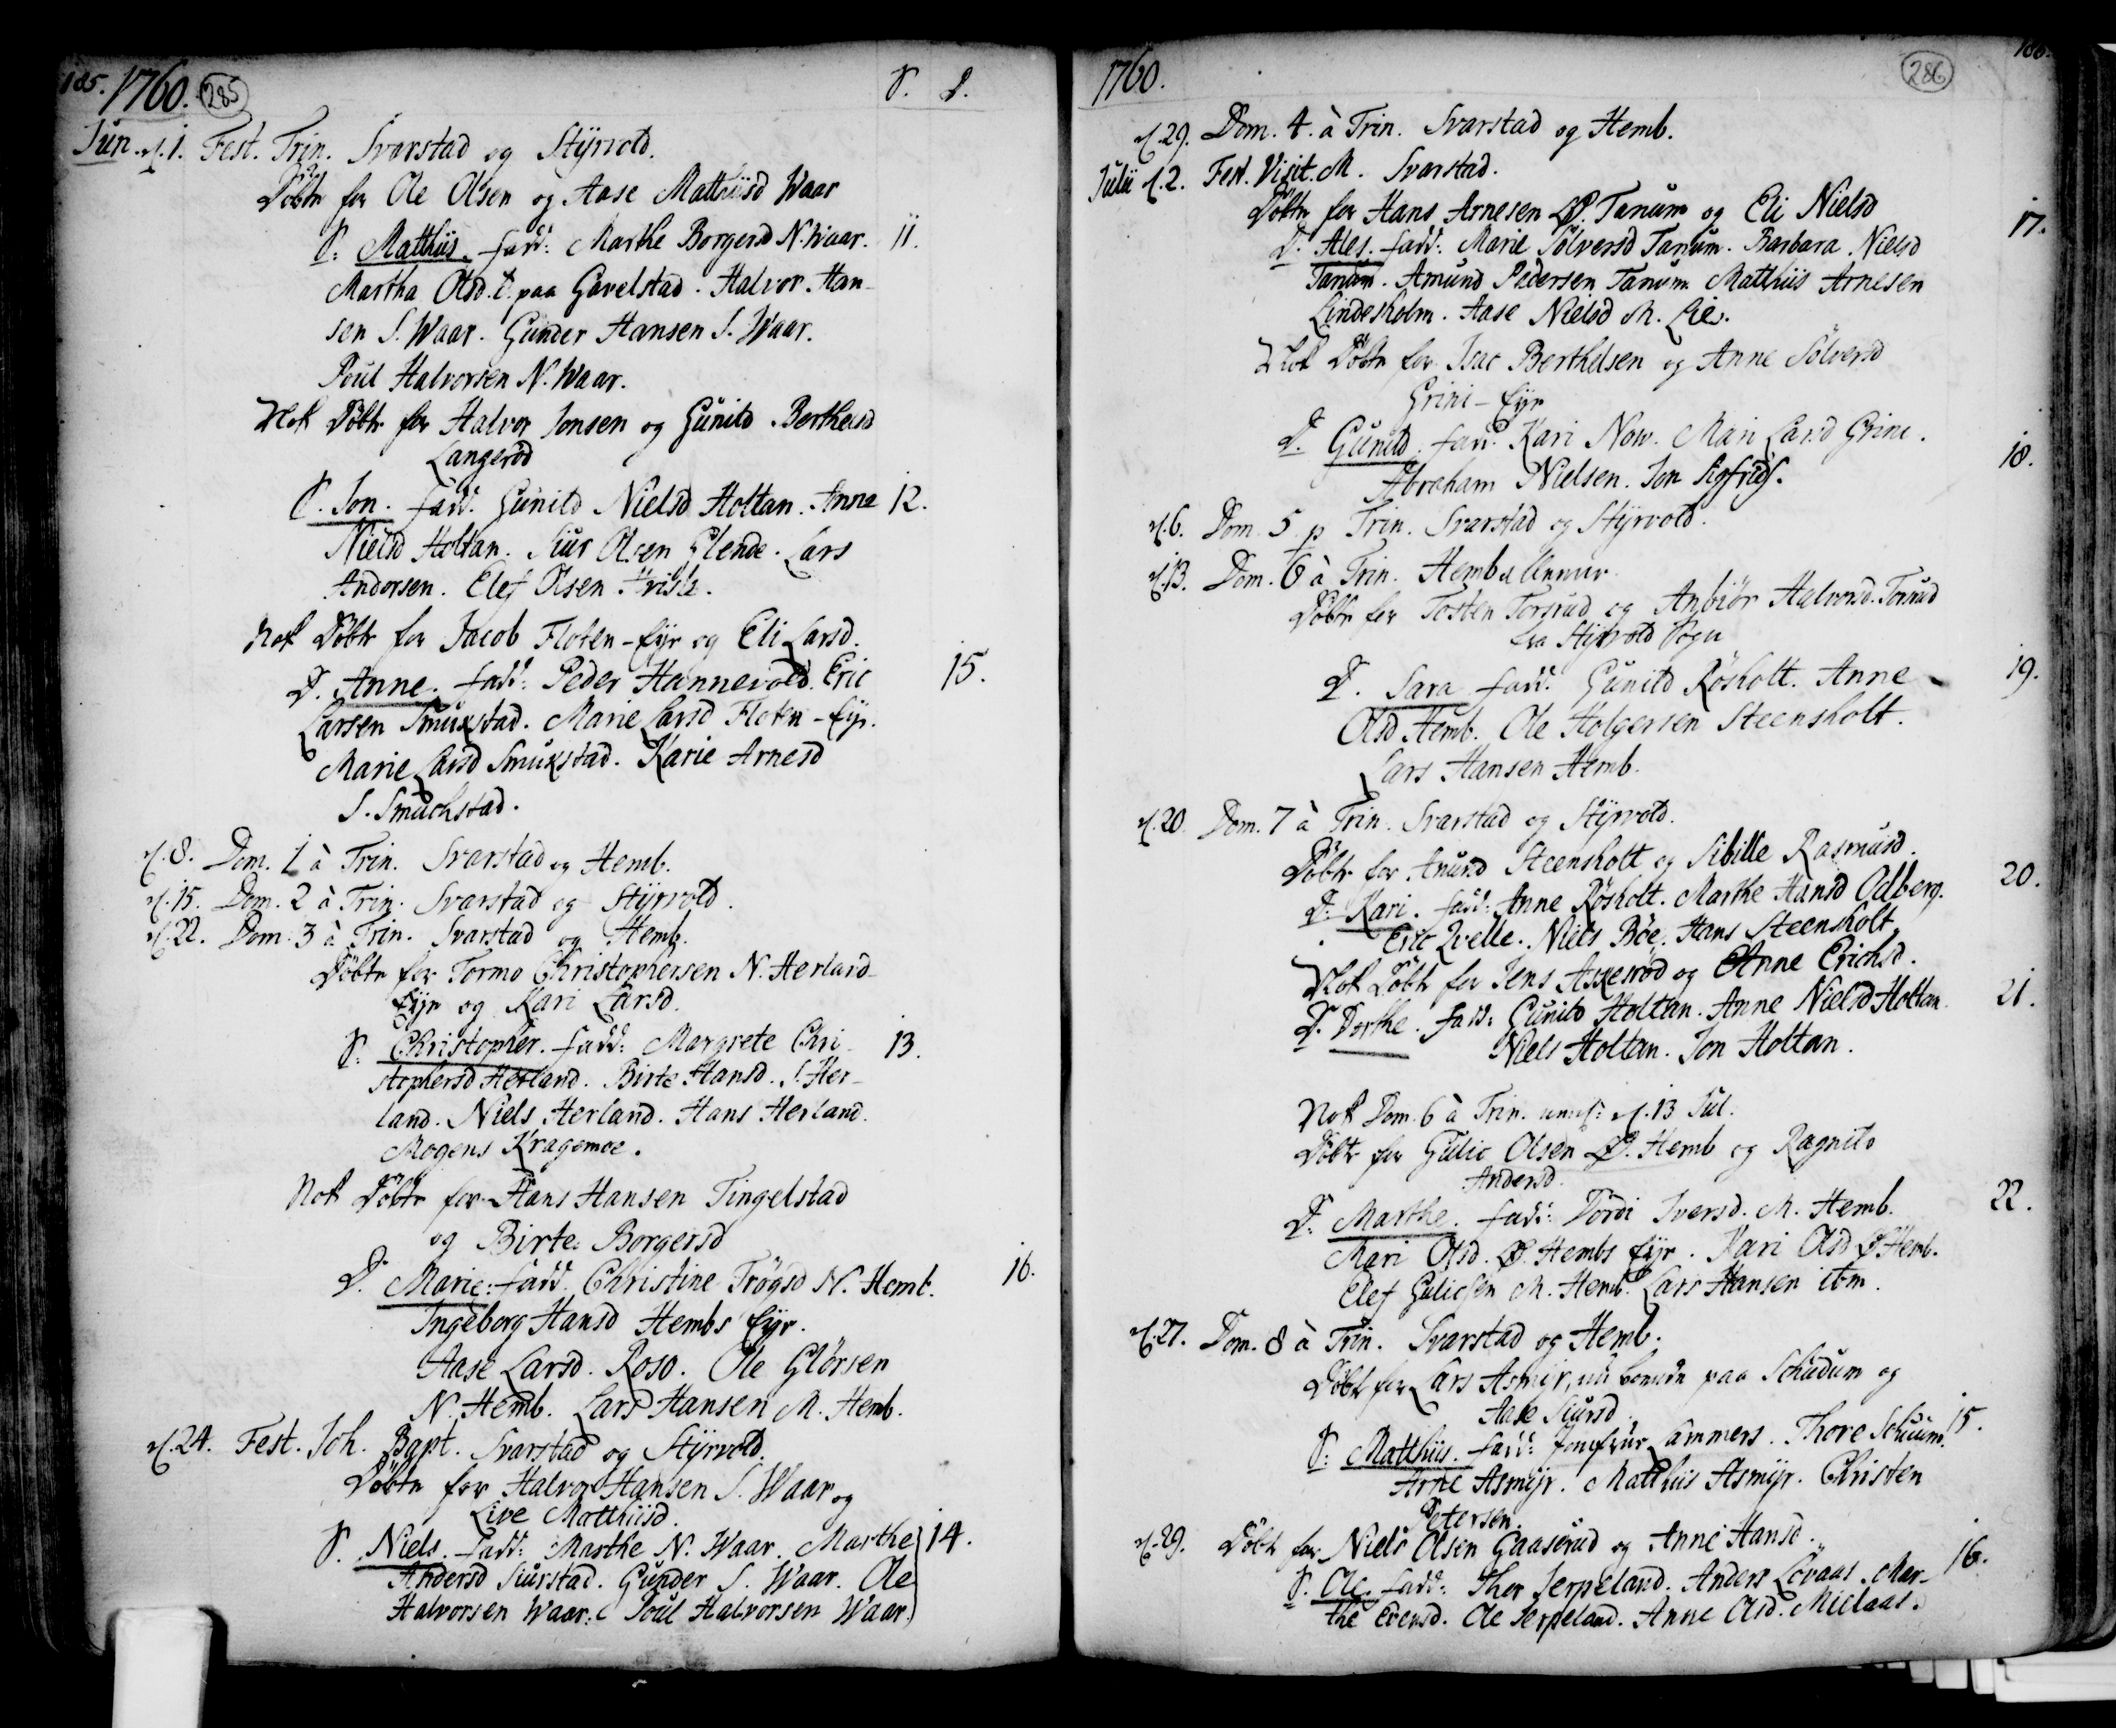 185. 1760. 285 S. D.
Jun. d. 1. Fest. Trin. Svarstad og Styrvold.
Döbte for Ole Olsen og Aase Matthiisd Waar
S: Matthiis. fadd: Marthe Borgersd N. Waar. 11.
Martha Olsd. t. paa Gavelstad. Halvor Han-
sen S. Waar. Gunder Hansen S. Waar.
Poul Halvorsen N. Waar.
Nok Döbte for Halvor Jonsen og Gunild Berthelsd
Langeröd
S. Jon. fadd. Gunild Nielsd Holtan. Anna 12.
Nielsd Holtan. Siur Olsen Elende. Lars
Andorsen. Elef Olsen
Nok Döbte for Jacob Floten-Eyr og Eli Larsd.
D. Anne. fadd: Peder Hannevold. Eric 15.
Larsen Smukstad. Marie Larsd Floten-Eyr.
Marie Larsd Smukstad. Karie Arnesd
S. Smuchstad.
d. 8. Dom. 1 à Trin. Svarstad og Hemb.
d. 15. Dom. 2 à Trin. Svarstad og Styrvold.
d. 22. Dom. 3 à Trin. Svarstad og Hemb.
Döbte for Tormo Christophersen N. Herland-
Eyr og Kari Larsd.
S: Christopher. fadd: Margrete Chri- 13.
stophersd Herland. Birte Hansd. S. Her-
land. Niels Herland. Hans Herland.
Mogens Kragemoe.
Nok Döbte for Hans Hansen Tingelstad
og Birte Borgersd
D. Marie: fadd. Christine Trögsd N. Hemb. 16.
Ingeborg Hansd Hembs Eyr.
Aase Larsd. Roso. Ole Glörsen
N. Hemb. Lars Hansen M. Hemb.
d. 24. Fest. Joh. Bapt. Svarstad og Styrvold.
Döbte for Halvor Hansen S. Waar og
Live Matthiisd.
S. Niels. fadd: Marthe N. Waar. Marthe 14.
Andersd Siurstad. Gunder S. Waar. Ole
Halvorsen Waar. Poul Halvorsen Waar.
1760. 286 186.
d. 29. Dom. 4. à Trin. Svarstad og Hemb.
Julii d. 2. Fest. Visit. M. Svarstad.
Döbte for Hans Arnesen Ø. Tanum og Eli Nielsd
D. Ales. fadd: Marie Sölversd Tanum. Barbara Nielsd 17.
Tanum. Amund Pedersen Tanum. Matthiis Arnesen
Lindesholm. Aase Nielsd M. Lie.
Nok Döbte for Isac Berthelsen og Anne Sölversd
Grini-Eyr
D. Gunild. fadd. Kari Now. Mari Larsd Grini. 18.
Abraham Nielsen. Jon
d. 6. Dom. 5 p Trin. Svarstad og Styrvold.
d. 13. Dom. 6 à Trin. Hemb
Döbte for Tosten Torsrud og Anbiör Halvorsd. Torsrud
fra Styrvold Sogn
D. Sara fadd. Gunild Rösholt. Anne 19.
Olsd Hemb. Ole Holgersen Steensholt.
Lars Hansen Hemb.
d. 20. Dom. 7 à Trin. Svarstad og Styrvold.
Döbte for Anund Steensholt og Sibille Rasmusd.
D. Kari. fadd: Anne Rösholt. Marthe Hansd Odberg. 20.
Eric Qvelle. Niels Böe. Hans Steensholt.
Nok Döbte for Jens Askeröd og Anne Erichsd.
D. Dorthe. fadd: Gunild Holtan. Anne Nielsd Holtan. 21.
Niels Holtan. Jon Holtan.
Nok Dom. 6 à Trin. d. 13 Jul.
Döbte for Gulic Olsen Ø. Hemb og Ragnild
Andersd.
D. Marthe. fadd: Tordi Iversd. M. Hemb. 22.
Mari Olsd. Ø. Hembs Eyr. Kari Olsd Ø. Hemb.
Elef Gulicsen M. Hemb. Lars Hansen ibm.
d. 27. Dom. 8 à Trin. Svarstad og Hemb.
Döbte for Lars Asmyr, nu boende paa Schudum og
Aase Siursd.
S: Matthiis. fadd: Jomfrue Lammers. Thore Schuum. 15.
Arne Asmyr. Matthiis Asmyr. Christen
Petersen.
d. 29. Döbte for Niels Olsen Gaaserud og Anne Hansd.
S. Ole. fadd: Ther Serpeland. Anders Lovaas. Mar- 16.
the Evensd. Ole Serpeland. Anne Olsd. Miclaas.